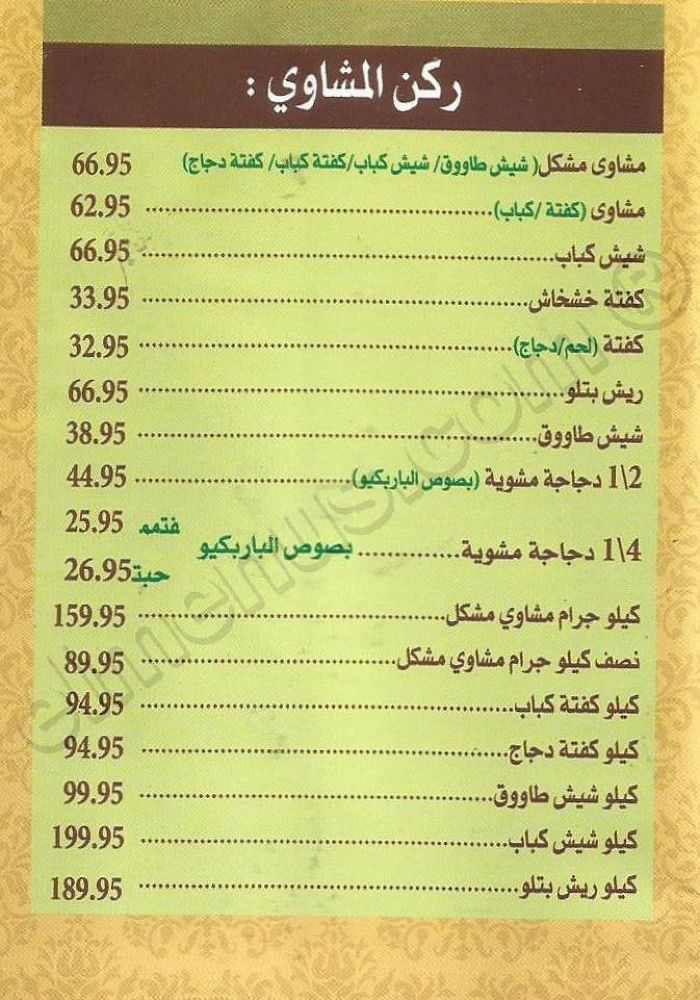 ركن المشاوي :
مشاوى مشكل( شيش طاووق/ شيش كباب/كفتة كباب/ كفتة دجاج) 66.95
مشاوى (كفتة /كباب) 62.95
شيش كباب 66.95
كفتة خشخاش 33.95
كفتة (لحم/دجاج) 32.95
ريش بتلو 66.95
شيش طاووق 38.95
1\2 دجاجة مشوية (بصوص الباربكيو) 44.95
1\4 دجاجة مشوية بصوص الباربكيو
25.95
26.95
كيلو جرام مشاوي مشكل 159.95
نصف كيلو جرام مشاوي مشكل 89.95
كيلو كفتة كباب 94.95
كيلو كفتة دجاج 94.95
كيلو شيش طاووق 99.95
كيلو شيش كباب 199.95
كيلو ريش بتلو 189.95
elmenus.com ®